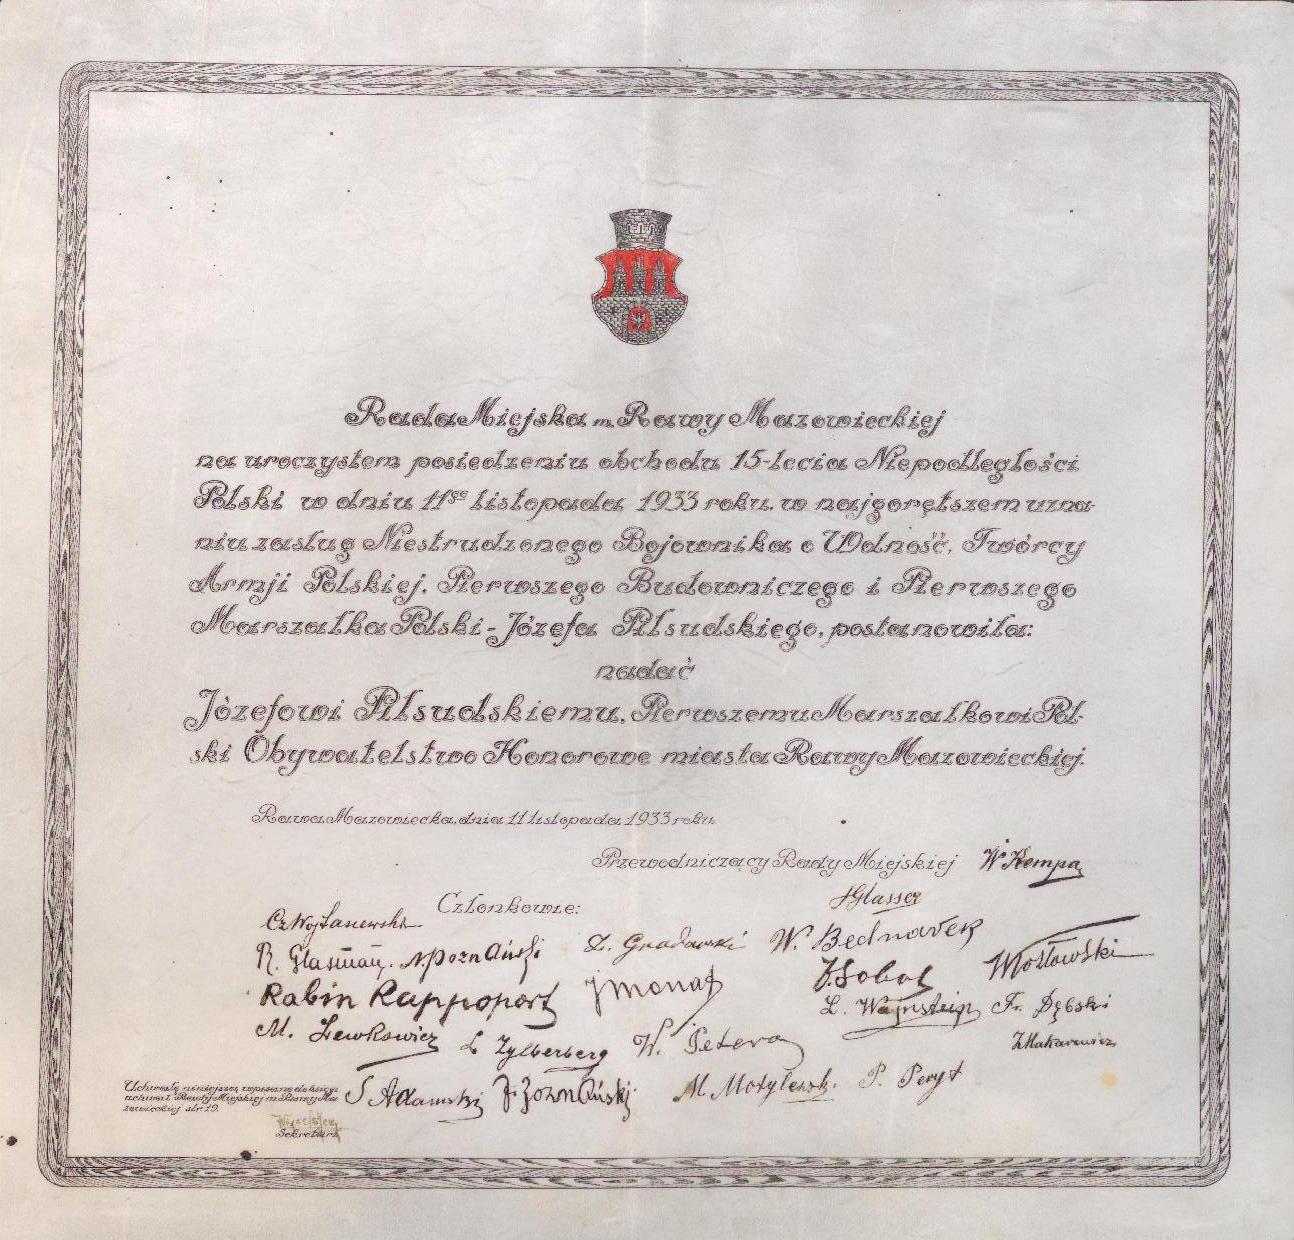 Rada Miejska m. Rawy Mazowieckiej
na uroczystem posiedzeniu obchodu 15-lecia Niepodległości
Polski w dniu 11go listopada 1933 roku, w najgorętszem uzna-
niu zasług Niestrudzonego Bojownika o Wolność, Twórcy
Armji Polskiej, Pierwszego Budowniczego i Pierwszego
Marszałka Polski - Józefa Piłsudskiego, postanowiła:
nadać
Józefowi Piłsudskiemu, Pierwszemu Marszałkowi Pol-
ski Obywatelstwo Honorowe miasta Rawy Mazowieckiej.
Rawa Mazowiecka, dnia 11 listopada 1933 roku
Przewodniczący Rady Miejskiej W Kempa
Członkowie:
Glasser
W. Bednarek
Mostowski
Rabin Rappoport
J Monat
J. Sobol
L. Wajnsztejn
Fr. Dębski
M. Lewkowicz
L Zylberberg
W. Petera
Makarewicz
S Adamski
P. Peryt
Uchwałę niniejszą wpisano do księgi
uchwał Rady Miejskiej m. Rawy Ma-
zowieckiej str 19.
Sekretarz